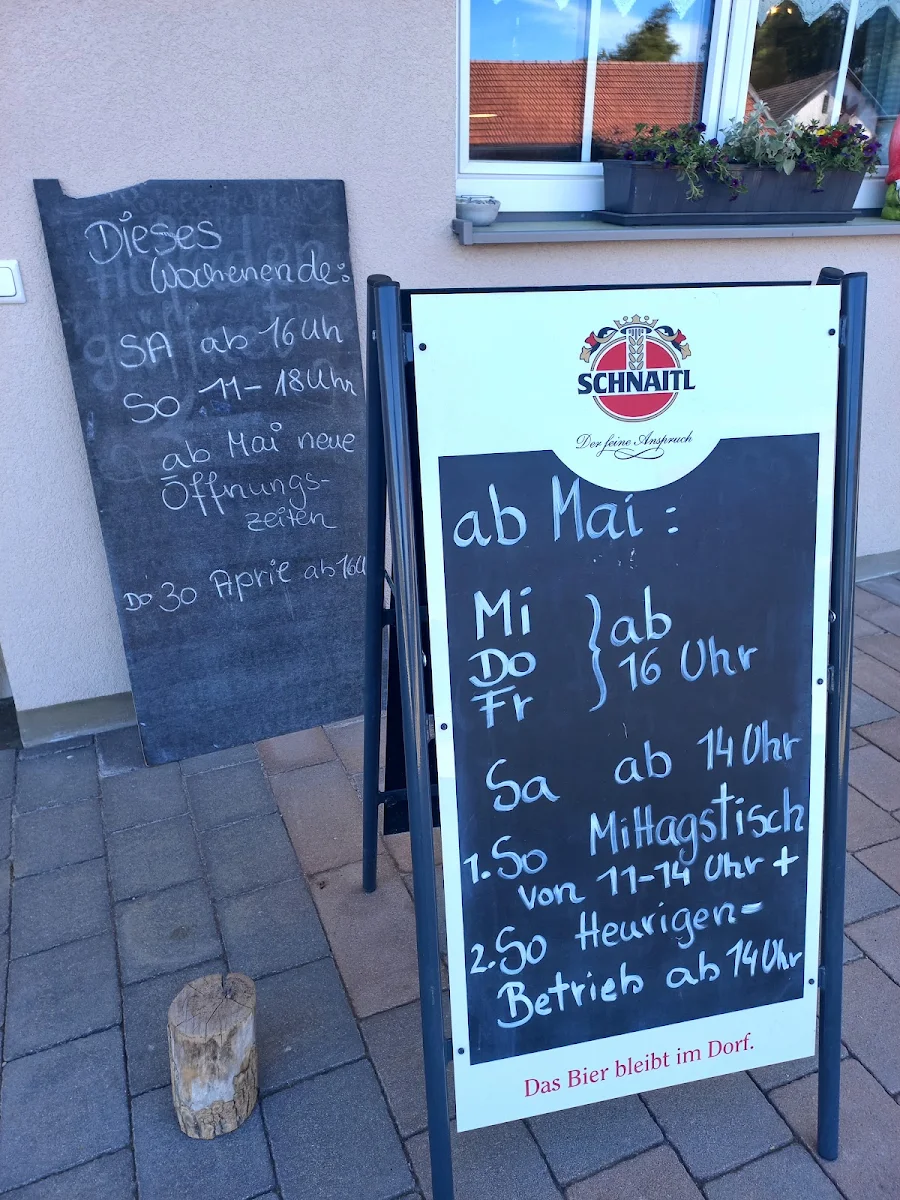 Dieses
Wochenende:
SA ab 16 Uh
So 11-18 Uhr
ab Mai neue
Öffnungs-
zeiten
DO 30 Aprie ab 16U
SCHNAITL
Der feine Anspruch
ab Mai:
Mi
Do } ab
Fr 16 Uhr
Sa ab 14 Uhr
1. So Mittagstisch
von 11-14 Uhr +
2. So Heurigen-
Betrieb ab 14 Uhr
Das Bier bleibt im Dorf.